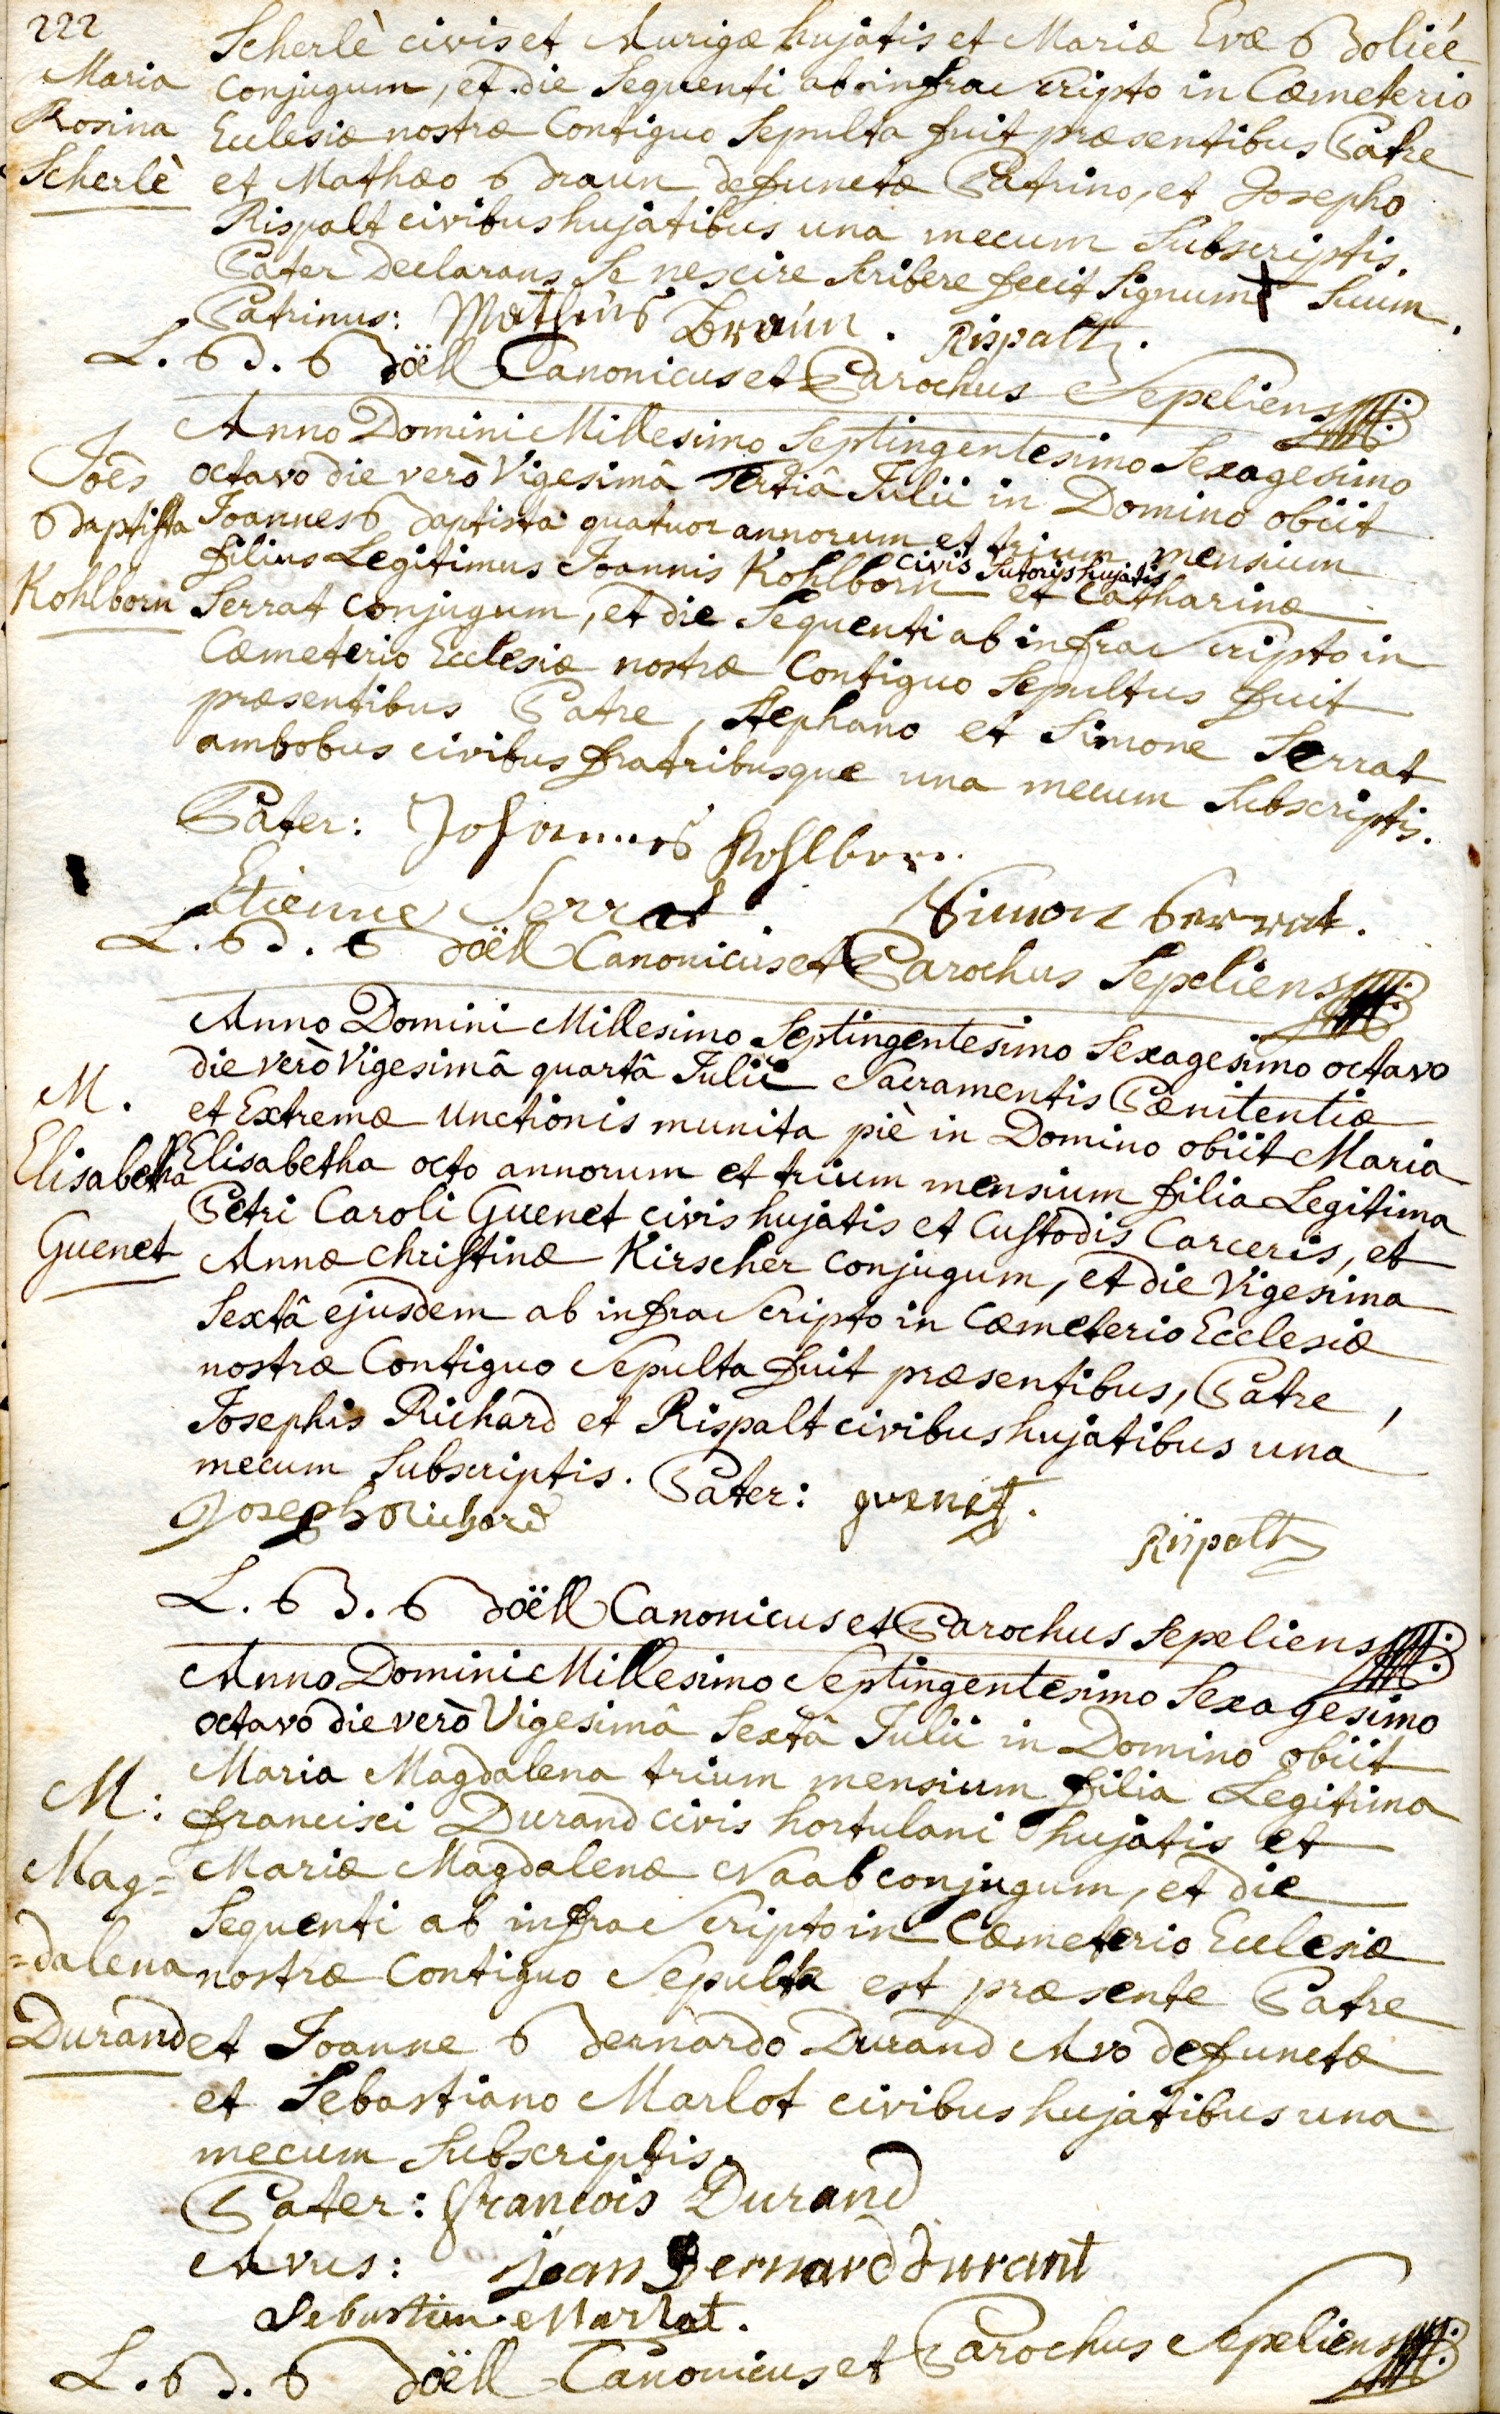 222
Scherlè civis et Aurigæ hujatis et Mariæ Evæ Boliéé
Maria
Rosina
Scherlè
Conjugum, et die Sequenti ab infra Scripto in Cœmeterio
Ecclesiæ nostræ Contiguo Sepulta fuit præsentibus Patre
et Mathæo Braun defunctæ Patrino, et Josepho
Rispalt civibus hujatibus una mecum Subscriptis.
Pater Declarans Se nescire Scribere fecit Signum + Suum.
Patrinus: Matheus Braun. Rispalt.
L. B. Boëll Canonicus et Parochus Sepeliens
Joes
Baptista
Kohlborn
Anno Domini Millesimo Septingentesimo Sexagesimo
octavo die verò Vigesimâ tertiâ Julii in Domino obiit
Joannes Baptista quatuor annorum et trium mensium
filius Legitimus Joannis Kohlborn civis Sutoris hujatis et Catharinæ
Serrat conjugum, et die Sequenti ab infra Scripto in
Cœmeterio Ecclesiæ nostræ Contiguo Sepultus fuit
præsentibus Patre, Stephano et Simone Serrat
ambobus civibus fratribusque una mecum Subscriptis.
Pater: Johannes Kohlborn.
Etienne Serrat Simon Serrat.
L. B. Boëll Canonicus et Parochus Sepeliens
M.
Elisabetha
Guenet
Anno Domini Millesimo Septingentesimo Sexagesimo octavo
die verò Vigesimâ quartâ Julii Sacramentis Pœnitentiæ
et Extremæ Unctionis munita piè in Domino obiit Maria
Elisabetha octo annorum et trium mensium filia Legitima
Petri Caroli Guenet civis hujatis et Custodis Carceris, et
Annæ Christinæ Kirscher conjugum, et die Vigesima
Sextâ ejusdem ab infra Scripto in Cœmeterio Ecclesiæ
nostræ Contiguo Sepulta fuit præsentibus, Patre,
Josephis Richard et Rispalt civibus hujatibus una
mecum Subscriptis. Pater: guenet.
Joseph Richard Rispalt
L. B. Boëll Canonicus et Parochus Sepeliens
M:
Mag=
=dalena
Durand
Anno Domini Millesimo Septingentesimo Sexagesimo
octavo die verò Vigesimâ Sextâ Julii in Domino obiit
Maria Magdalena trium mensium filia Legitima
francisci Durand civis hortulani hujatis et
Mariæ Magdalenæ Naab conjugum, et die
Sequenti ab infra Scripto in Cœmeterio Ecclesiæ
nostræ Contiguo Sepulta est præsente Patre
et Joanne Bernardo Durand Avo defunctæ
et Sebastiano Marlot civibus hujatibus una
mecum Subscriptis.
Pater: francois Durand
Avus: jean Bernard durant
Sebastien Marlot.
L. B. Boëll Canonicus et Parochus Sepeliens